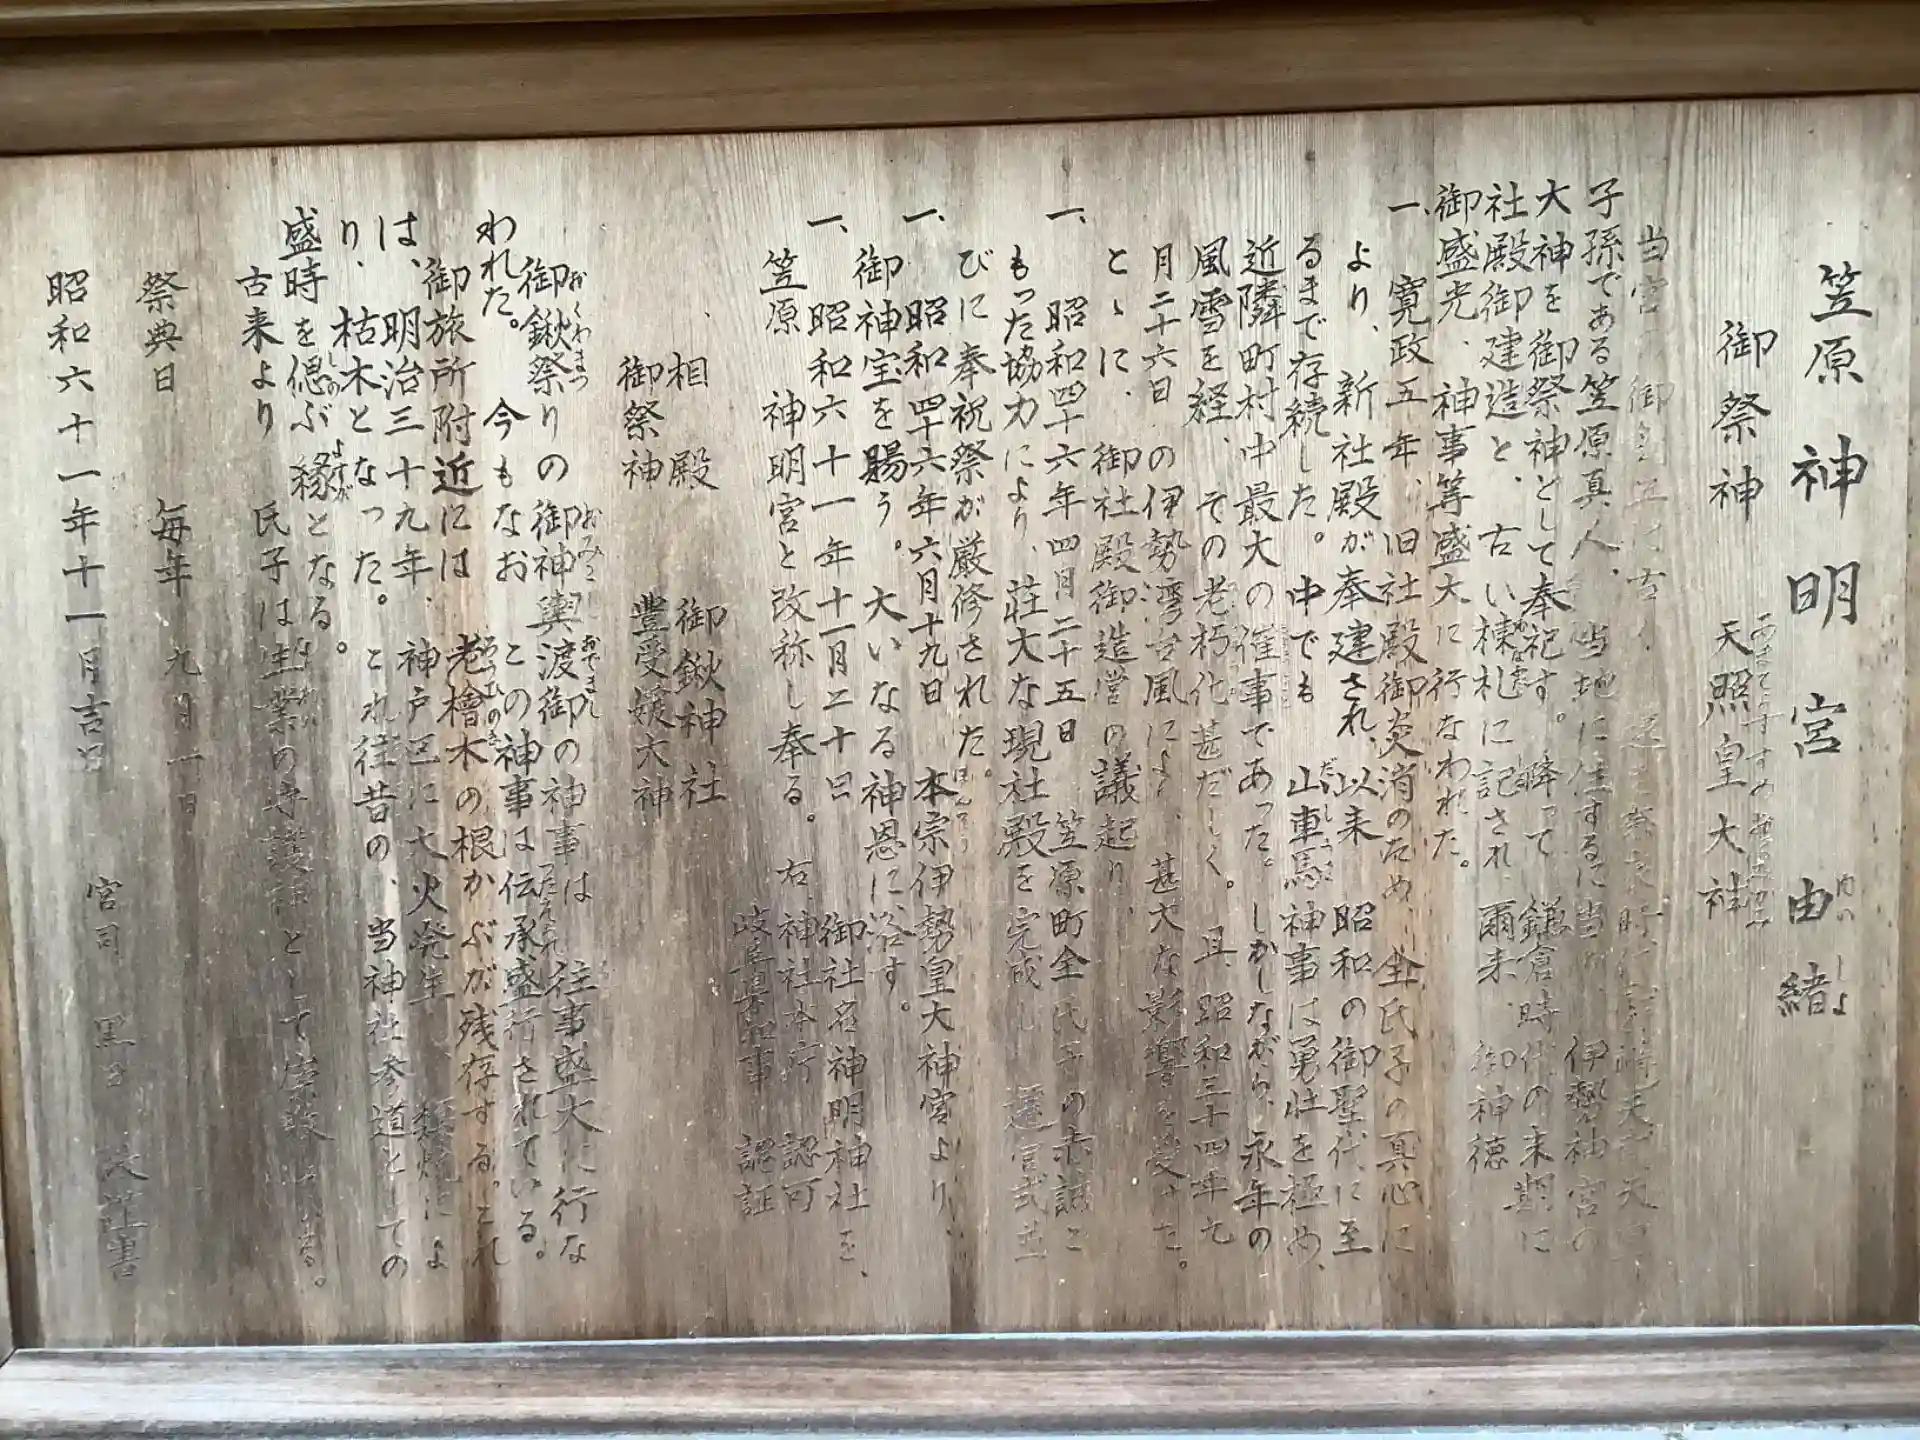 笠原神明宮由緒
御祭神 天照皇大神
当宮の御創立は古く
子孫である笠原真人、当地に住するに当り、伊勢神宮の
大神を御祭神として奉祀す。降って鎌倉時代の末期に
社殿御建造と、古い棟札に記され、爾来、御神徳
御盛光、神事等盛大に行なわれた。
一、寛政五年、旧社殿御炎消のため、全氏子の真心に
より、新社殿が奉建され、以来昭和の御聖代に至
るまで存続した。中でも山車馬神事は勇壮を極め、
近隣町村中最大の催事であった。しかしながら、永年の
風雪を経、その老朽化甚だしく。且、昭和三十四年九
月二十六日の伊勢湾台風により、甚大な影響を受けた。
とゝに、御社殿御造営の議起り、
一、昭和四十六年四月二十五日 笠原町全氏子の赤誠こ
もった協力により、荘大な現社殿を完成し 遷宮式並
びに奉祝祭が厳修された。
一、昭和四十六年六月十九日 本宗伊勢皇大神宮より、
御神宝を賜う。大いなる神恩に浴す。
一、昭和六十一年十一月二十日 御社名神明神社を、
笠原神明宮と改称し奉る。右、神社本庁 認可
岐阜県知事 認証
、相殿 御鍬神社
御祭神 豊受媛大神
御鍬祭りの御神輿渡御の神事は往事盛大に行な
われた。今もなおこの神事は伝承盛行されている。
御旅所附近には老檜木の根かぶが残存する。これ
は、明治三十九年、神戸区に大火発生、類焼によ
り、枯木となった。これ往昔の、当神社参道としての
盛時を偲ぶ縁となる。
古来より氏子は生業の守護神として崇敬
祭典日 毎年 九月 一日
昭和六十一年十一月吉日 宮司